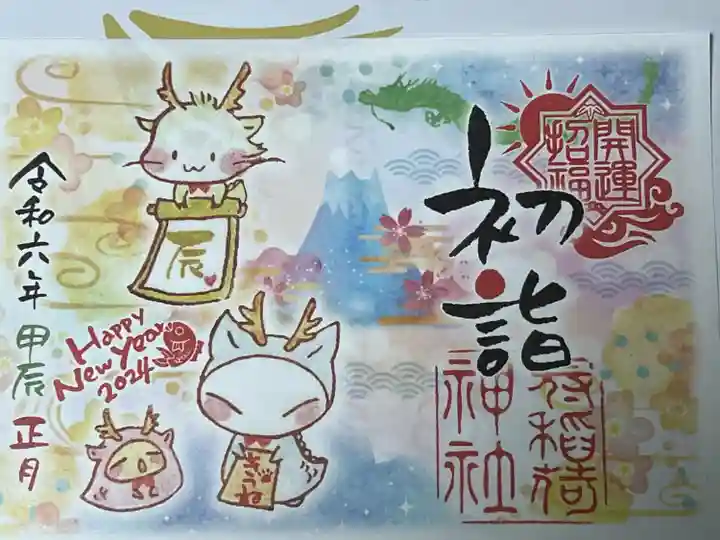 開運
招福
初詣
稲荷
神社
辰
きつね
Happy
New Year
2024
令和六年 甲辰 正月